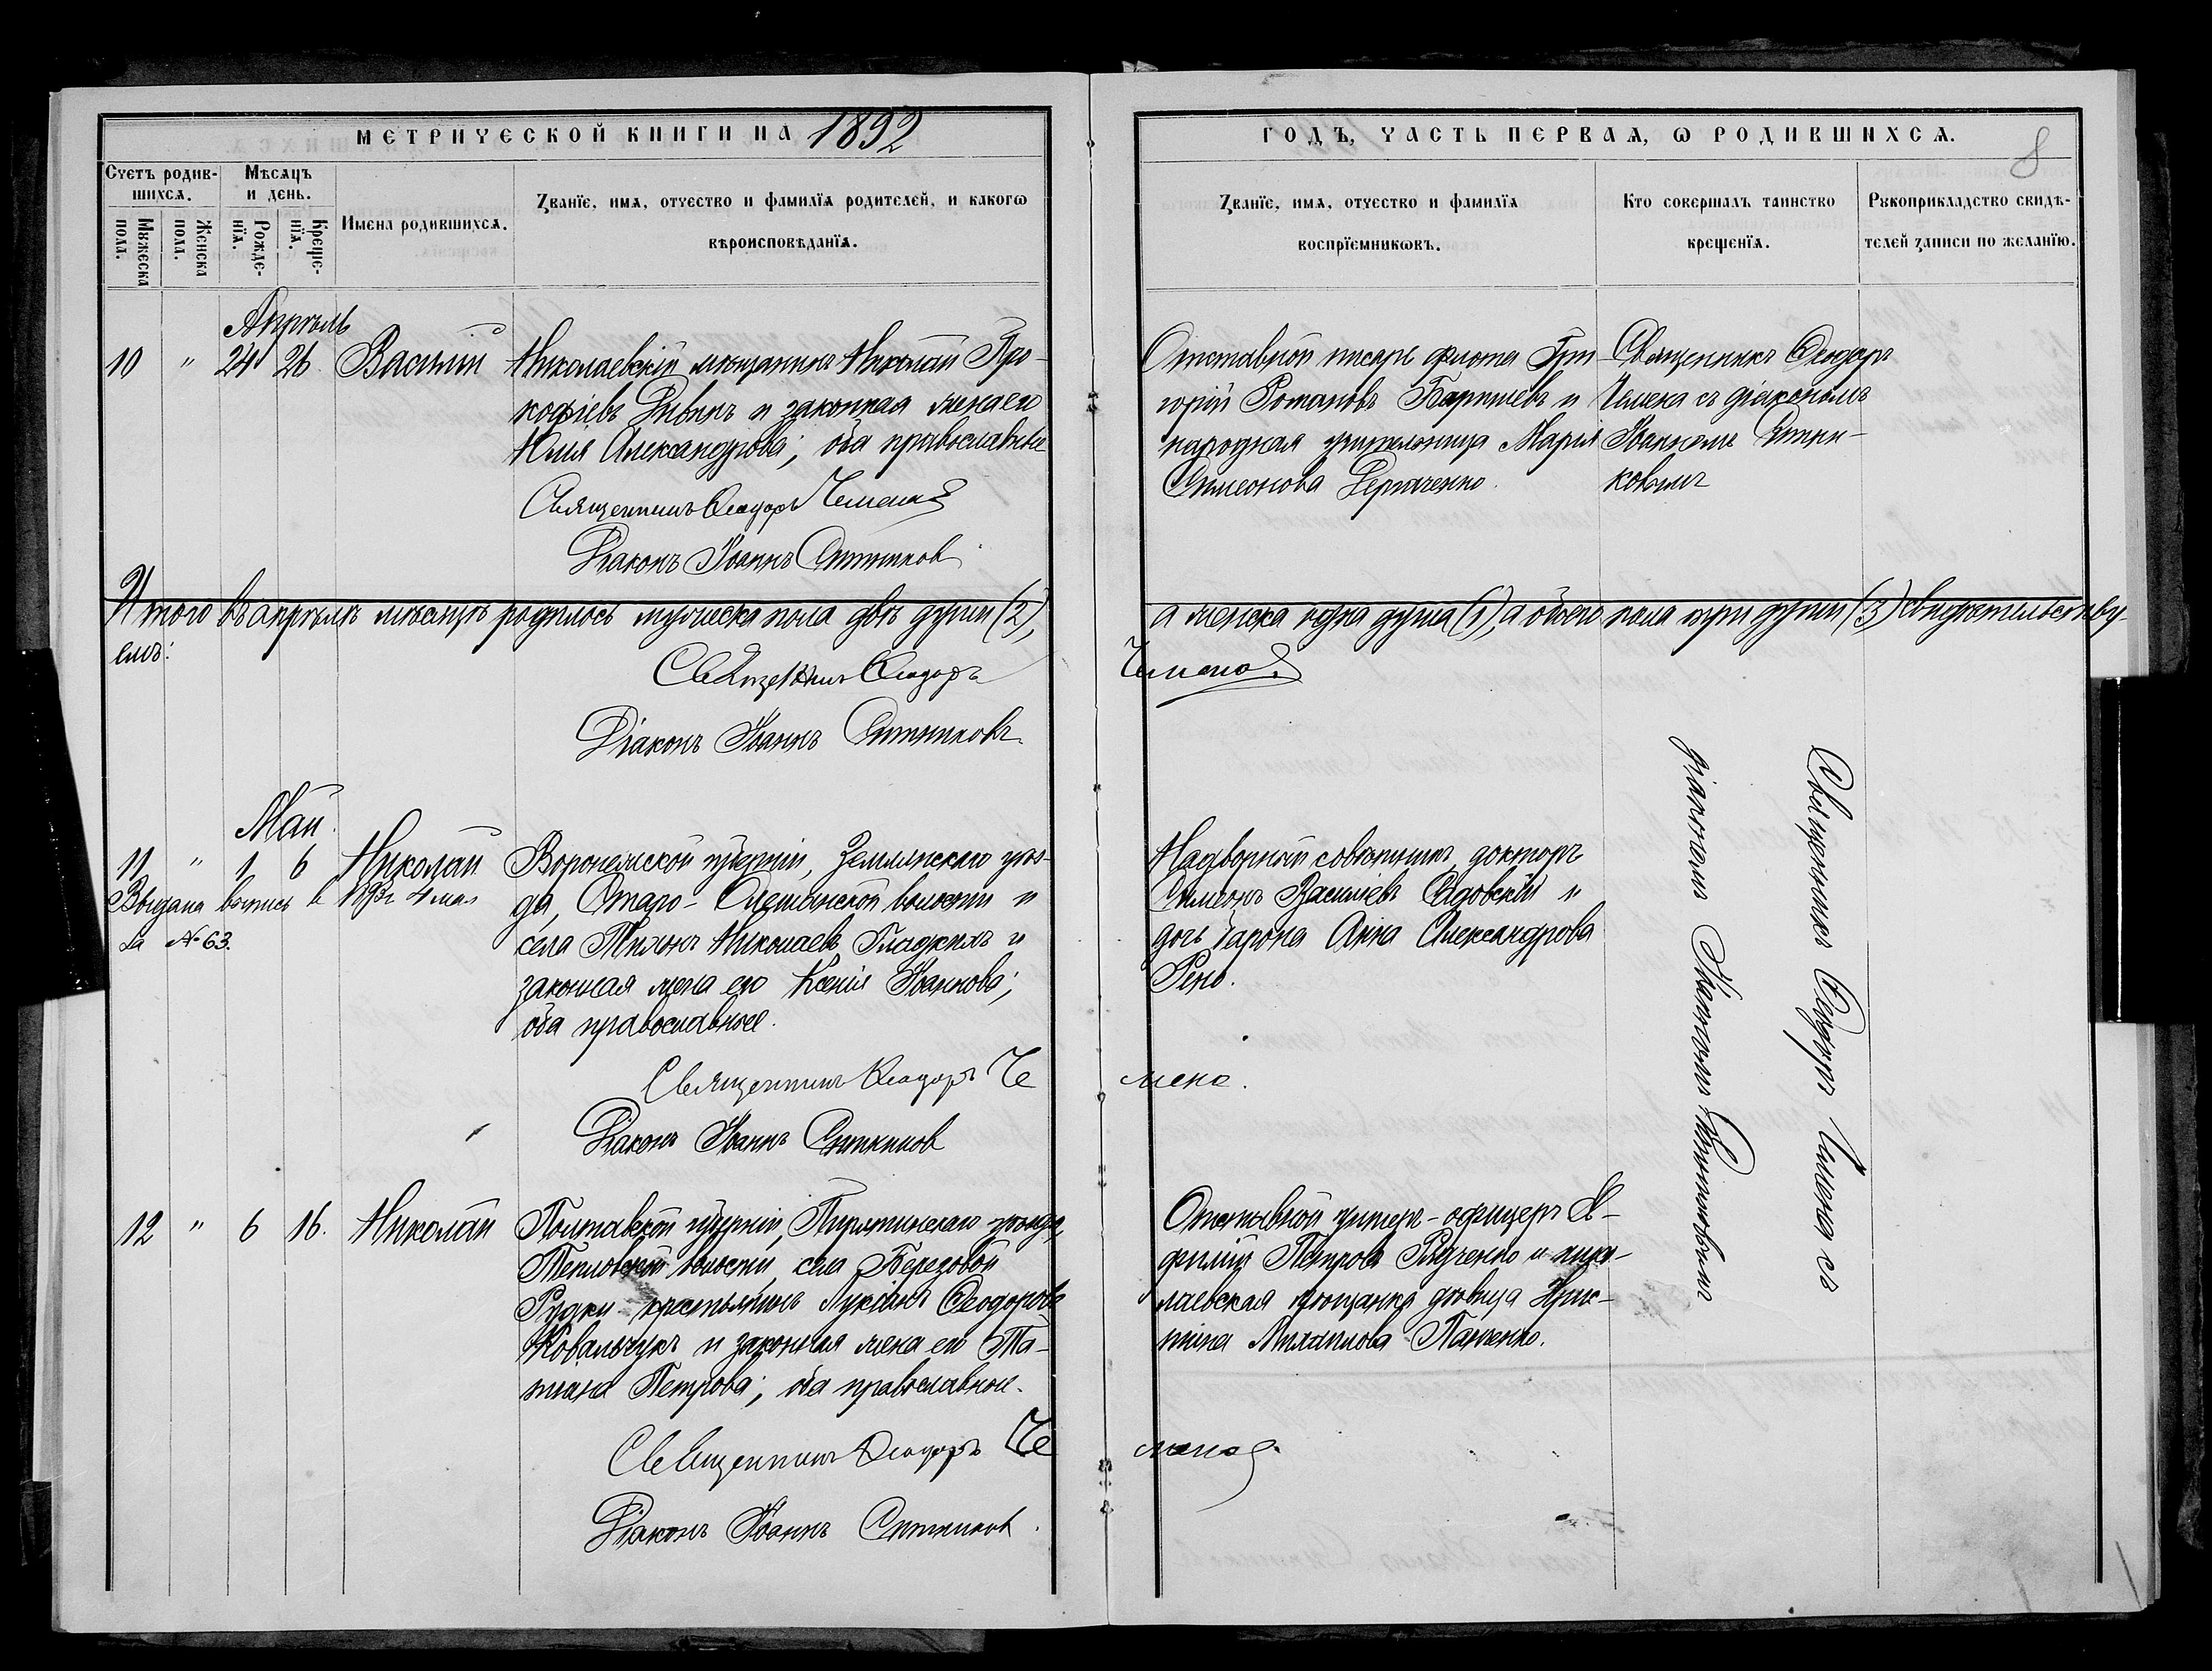 МЕТРИЧЕСКОЙ КНИГИ НА 1892
ГОДЪ, ЧАСТЬ ПЕРВАѦ, Ѡ РОДИВШИХСѦ.
8
Счетъ родив-
шихсѧ.
Мѣсѧцъ
и день.
Мꙋжеска
пола.
Женска
пола.
Рожде-
нїѧ.
Креще-
нїѧ.
Имена родившихсѧ.
Званїе, имѧ, отчество и фамилїѧ родителей, и какогѡ
вѣроисповѣданїѧ.
Званїе, имѧ, отчество и фамилїѧ
воспрїемникѡвъ.
Кто совершалъ таинство
крещенїѧ.
Рꙋкоприкладство свидѣ-
телей записи по желанїю.
Апрѣль
10 " 24 26 Василій
Николаевскій мѣщанинъ Николай Про-
кофіевъ и законная жена его
Юлія Александрова; оба православные
Священникъ Ѳеодоръ
Діаконъ Іоаннъ Ситниковъ
Отставной писарь флота Гри-
горій Романовъ и
народная учительница Марія
Симеонова
Священникъ Ѳеодоръ
съ діакономъ
Іоанномъ Ситни-
ковымъ
Итого въ апрѣлѣ мѣсяцѣ родилось мужеска пола двѣ души (2),
а женска одна душа (1), а обоего пола три души (3) свидѣтельству-
емъ:
Священникъ Ѳеодоръ
Діаконъ Іоаннъ Ситниковъ
Май
11 " 1 6 Николай
Выдана выпись в 1893г 4 мая
за № 63.
Воронежской губерніи, Землянскаго уѣз-
да, Старо- волости и
села Тихонъ Николаевъ Гладкихъ и
законная жена его Ксенія Іоаннова;
оба православные.
Священникъ Ѳеодоръ Че
мена.
Діаконъ Іоаннъ Ситниковъ
Надворный совѣтникъ, докторъ
Симеонъ Василіевъ Садовскій и
дочь барона Анна Александрова
Рено.
Священникъ Ѳеодоръ Чемена съ
діакономъ Іоанномъ Ситниковымъ
12 " 6 16. Николай
Полтавской губерніи, Пирятинскаго уѣзда,
Тепловской волости, села Березовой
Рудки крестьянинъ Лукіанъ Ѳеодоровъ
Ковальчукъ и законная жена его Та-
тіана Петрова; оба православные.
Священникъ Ѳеодоръ Че
мена.
Діаконъ Іоаннъ Ситниковъ.
Отставной унтеръ-офицеръ Ев-
фимій Петровъ и нико-
лаевская мѣщанка дѣвица Хрис-
тина Михаилова Панченко.